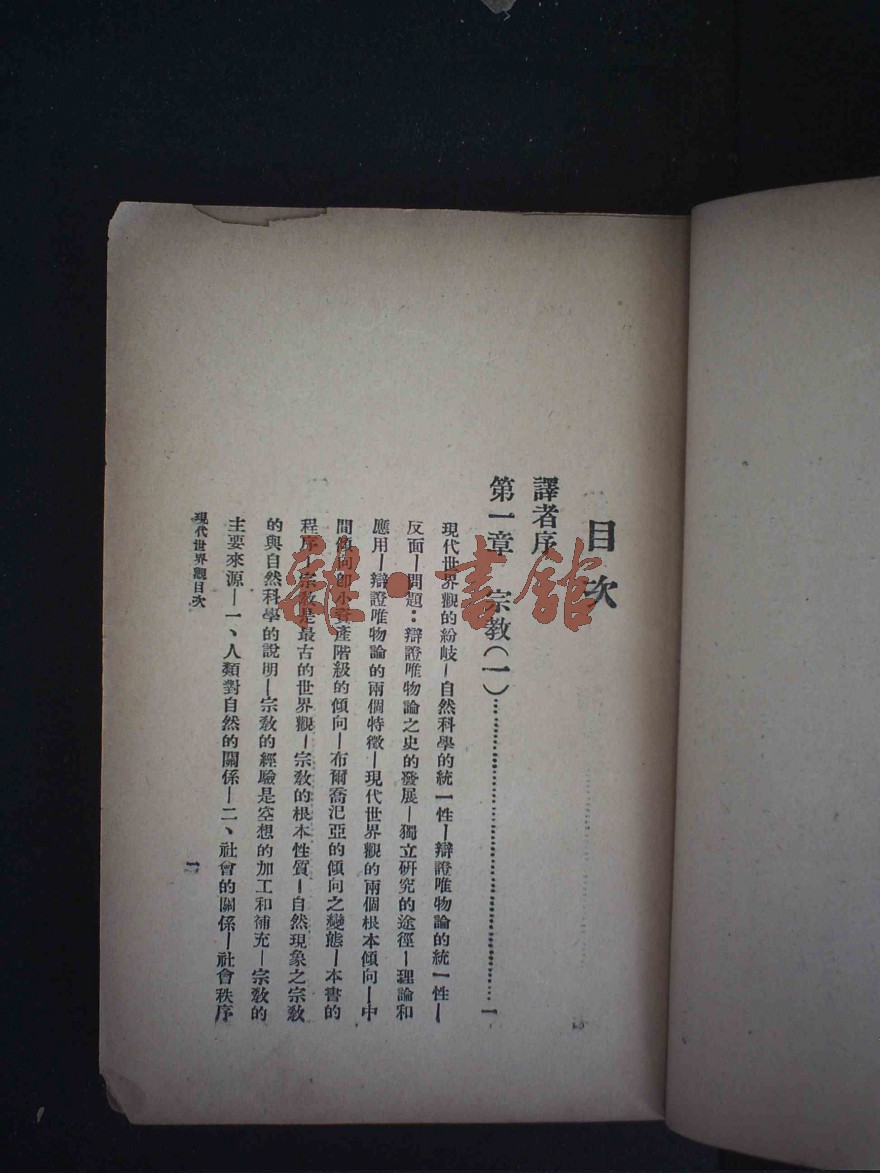 目次
譯者序
第一章 宗教(一)…………一
現代世界觀的紛岐—自然科學的統一性—辯證唯物論的統一性—
反面—問題：辯證唯物論之史的發展—獨立硏究的途徑—理論和
應用—辯證唯物論的兩個特徵—現代世界觀的兩個根本傾向—中
間傾向卽小資產階級的傾向—布爾喬汜亞的傾向之變態—本書的
程序—宗教是最古的世界觀—宗教的根本性質—自然現象之宗教
的與自然科學的說明—宗教的經驗是空想的加工和補充—宗教的
主要來源—一、人類對自然的關係—二、社會的關係—社會秩序
現代世界觀目次
一
龍·書館